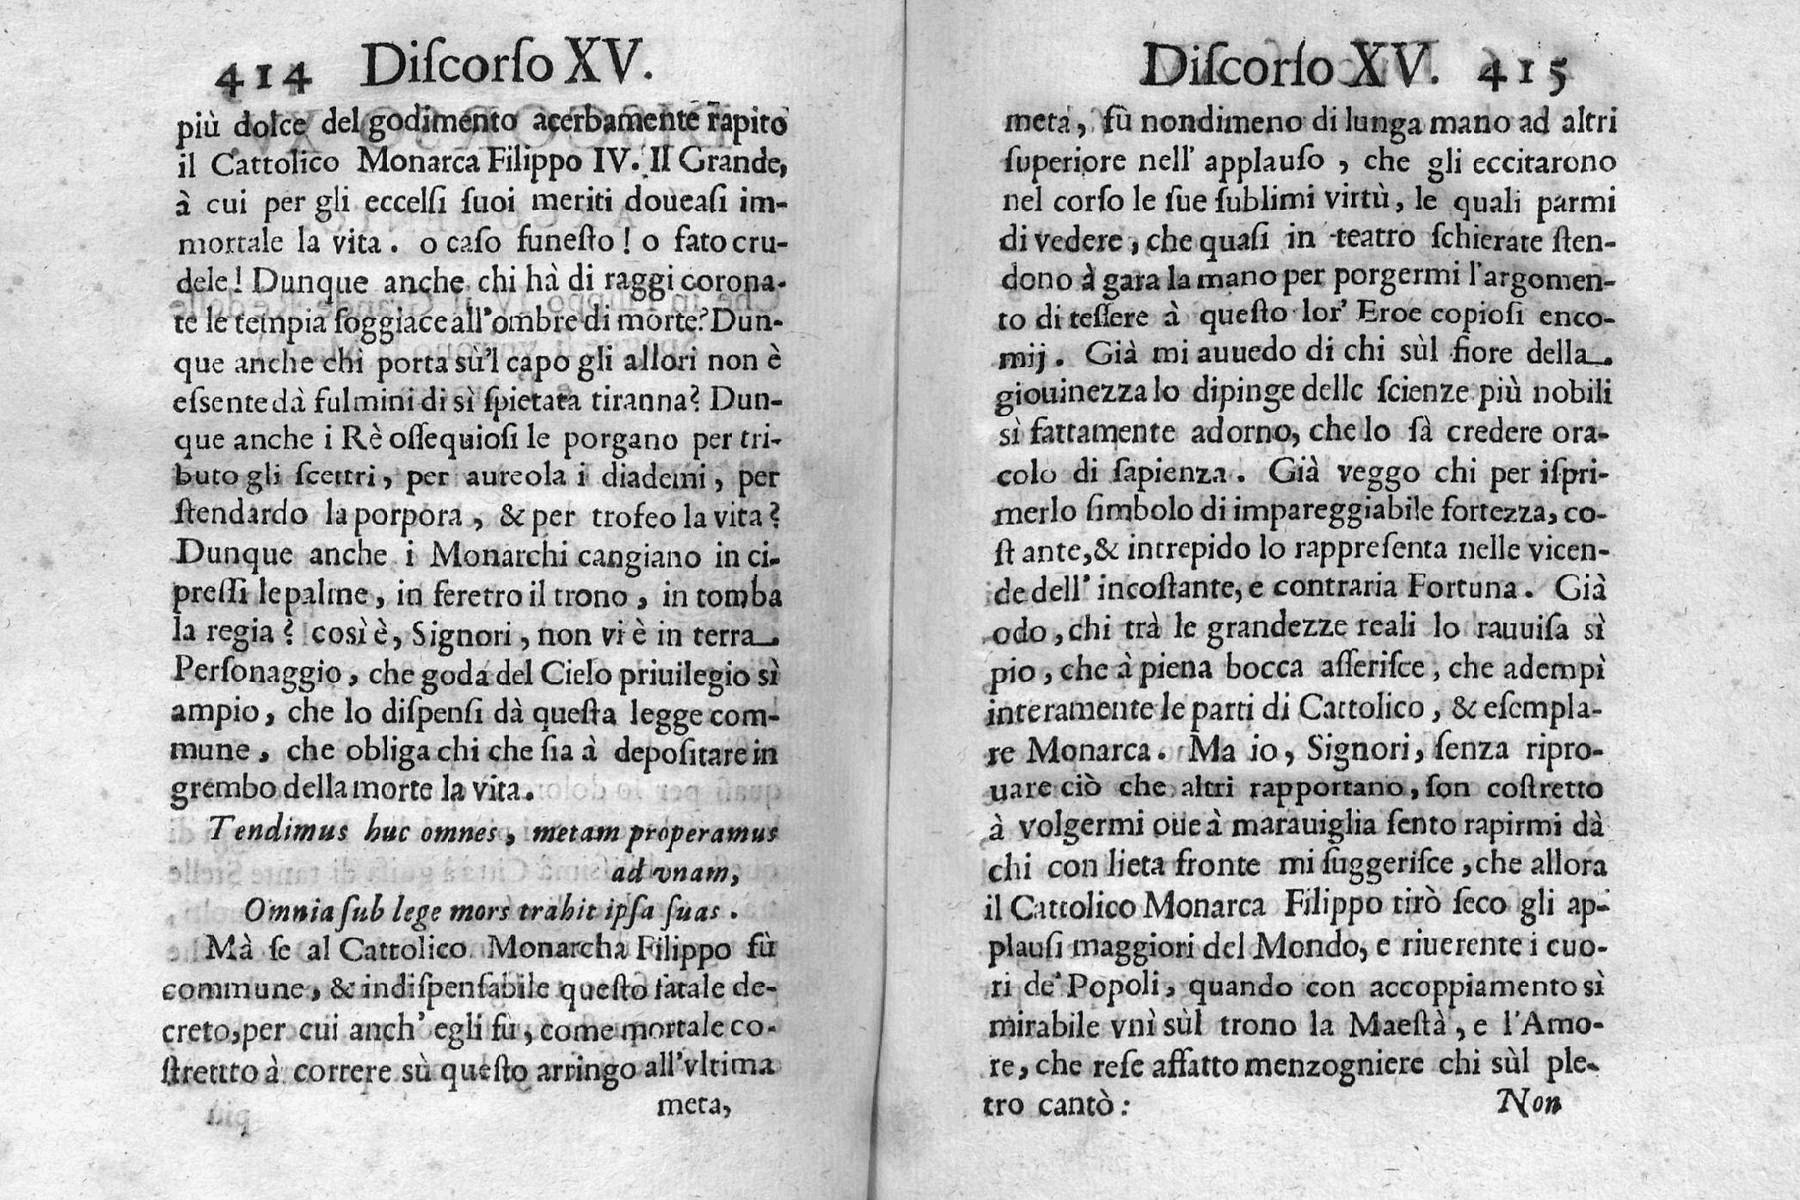 414 Diſcorſo XV.
più dolce del godimento acerbamente rapito
il Cattolico Monarca Filippo IV. Il Grande,
à cui per gli eccelſi ſuoi meriti doueaſi im-
mortale la vita. o caſo funeſto! o fato cru-
dele! Dunque anche chi hà di raggi corona-
te le tempia ſoggiace all'ombre di morte? Dun-
que anche chi porta sù'l capo gli allori non è
eſsente dà fulmini di sì ſpietata tiranna? Dun-
que anche i Rè oſſequioſi le porgano per tri-
buto gli ſcettri, per aureola i diademi, per
ſtendardo la porpora, & per trofeo la vita?
Dunque anche i Monarchi cangiano in ci-
preſſi le palme, in feretro il trono, in tomba
la regia? così è, Signori, non vi è in terra
Perſonaggio, che goda del Cielo priuilegio sì
ampio, che lo diſpenſi dà queſta legge com-
mune, che obliga chi che ſia à depoſitare in
grembo della morte la vita.
Tendimus huc omnes, metam properamus
ad vnam,
Omnia ſub lege mors trahit ipſa ſuas.
Mà ſe al Cattolico Monarcha Filippo fù
commune, & indiſpenſabile queſto fatale de-
creto, per cui anch' egli fù, come mortale co-
ſtretto à correre sù queſto arringo all'vltima
meta,
Diſcorſo XV. 415
meta, fù nondimeno di lunga mano ad altri
ſuperiore nell' applauſo, che gli eccitarono
nel corſo le ſue ſublimi virtù, le quali parmi
di vedere, che quaſi in teatro ſchierate ſten-
dono à gara la mano per porgermi l'argomen-
to di teſſere à queſto lor' Eroe copioſi enco-
mij. Già mi auuedo di chi sùl fiore della
giouinezza lo dipinge delle ſcienze più nobili
sì fattamente adorno, che lo fà credere ora-
colo di ſapienza. Già veggo chi per iſpri-
merlo ſimbolo di impareggiabile fortezza, co-
ſtante, & intrepido lo rappreſenta nelle vicen-
de dell' incoſtante, e contraria Fortuna. Già
odo, chi trà le grandezze reali lo rauuiſa sì
pio, che à piena bocca aſſeriſce, che adempì
interamente le parti di Cattolico, & eſempla-
re Monarca. Ma io, Signori, ſenza ripro-
uare ciò che altri rapportano, ſon coſtretto
à volgermi oue à marauiglia ſento rapirmi dà
chi con lieta fronte mi ſuggeriſce, che allora
il Cattolico Monarca Filippo tirò ſeco gli ap-
plauſi maggiori del Mondo, e riuerente i cuo-
ri de' Popoli, quando con accoppiamento sì
mirabile vnì sùl trono la Maeſtà, e l'Amo-
re, che reſe affatto menzogniere chi sùl ple-
tro cantò:
Non